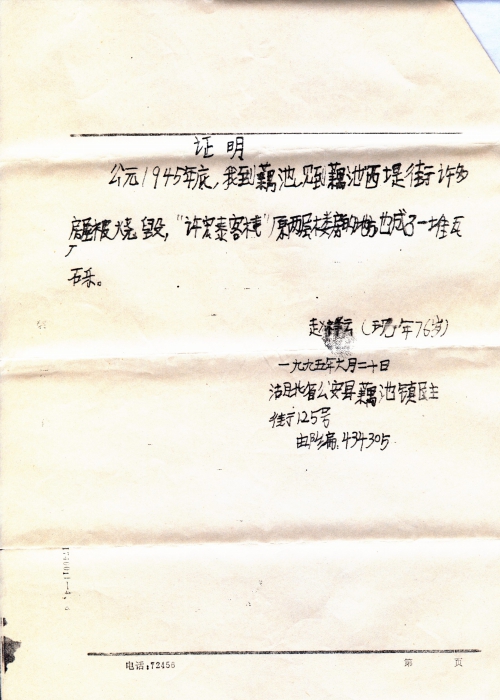 证明
公元1945年底，我到藕池，见到藕池西堤街许多
房屋被烧毁，"许宏泰客栈"原两层楼房的地也成了一堆瓦
石乐。
赵云（现年76岁）
一九九五年六月二十日
湖北省公安县藕池镇民主
街125号
邮编：434305
电话：72456
第 页